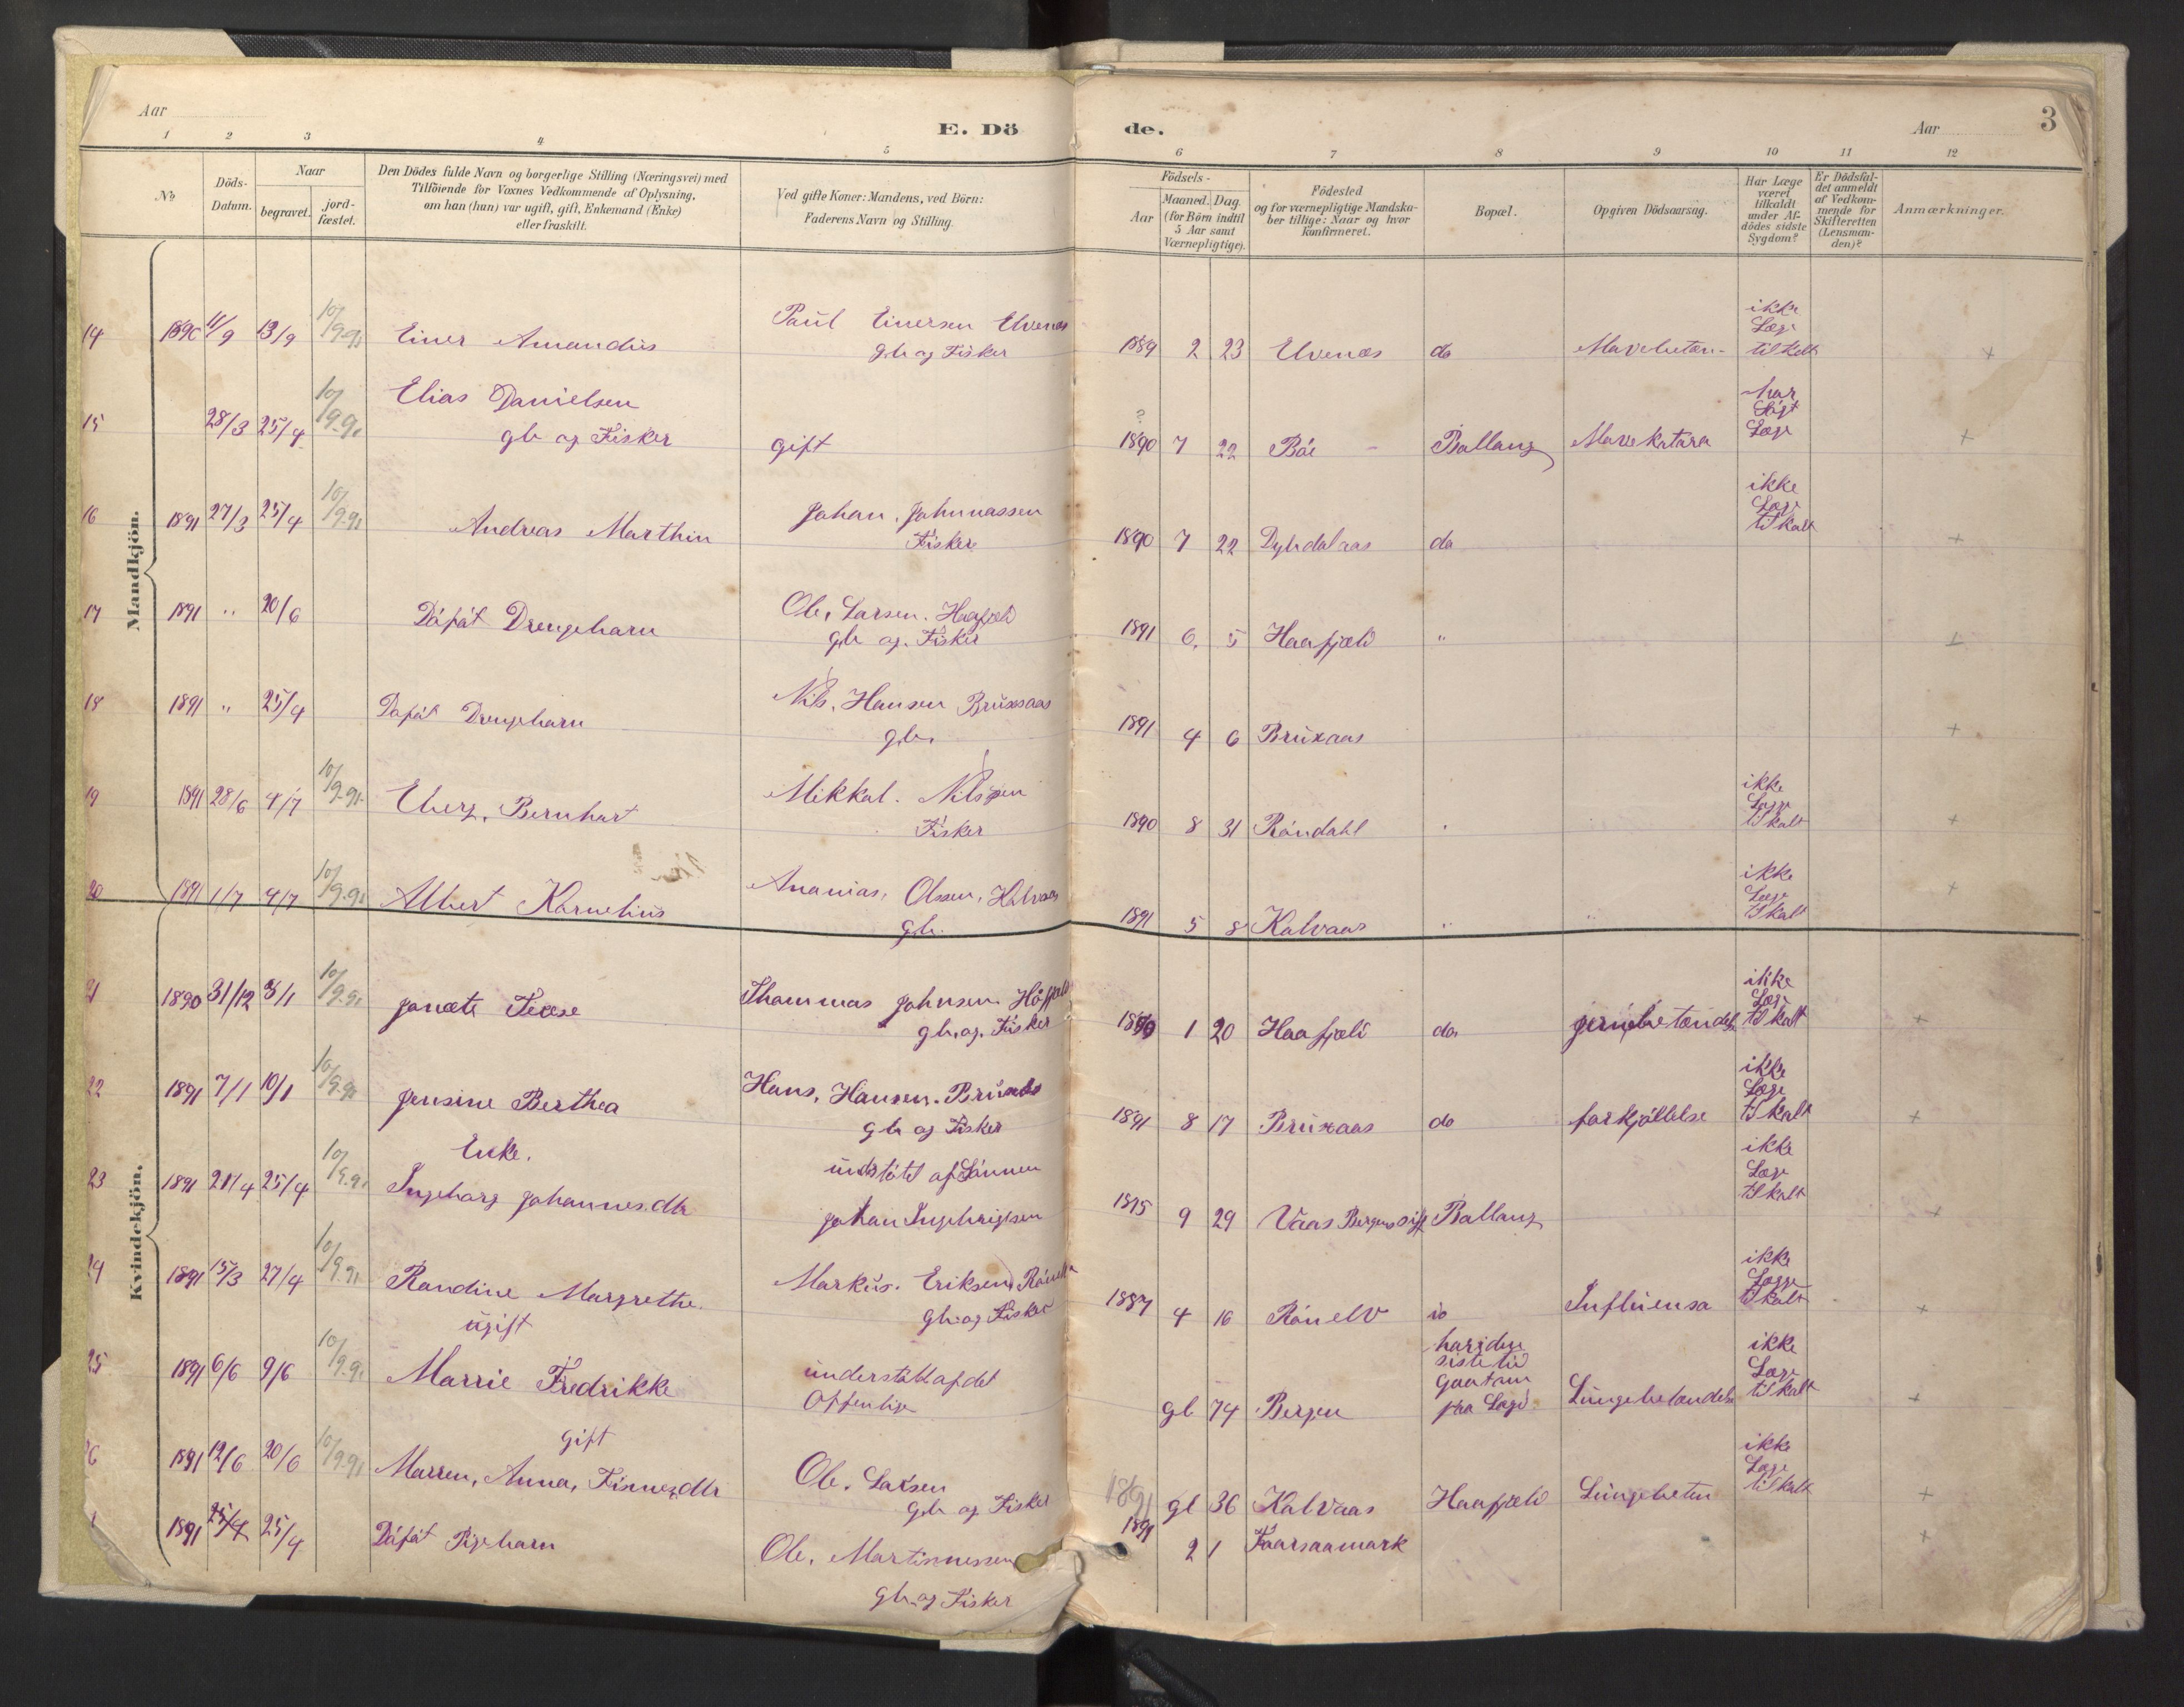 Aar
E. Dö
de.
Aar
3
1 2 3 4 5 6 7 8 9 10 11 12
No
Döds-Datum.
Naar
begravet.
jord-fæstet.
Den Dödes fulde Navn og borgerlige Stilling (Næringsvei) med
Tilföiende for Voxnes Vedkommende af Oplysning,
om han (hun) var ugift, gift, Enkemand (Enke)
eller fraskilt.
Ved gifte Koner: Mandens, ved Börn:
Faderens Navn og Stilling.
Födsels-
Aar
Maaned. Dag.
(for Börn indtil
5 Aar samt
Værnepligtige).
Födested
og for værnepligtige Mandska-
ber tillige: Naar og hvor
konfirmeret.
Bopæl.
Opgiven Dödsaarsag.
Har Læge
været
tilkaldt
under Af-
dödes sidste
Sygdom?
Er Dödsfal-
det anmeldt
af Vedkom-
mende for
Skifteretten
(Lensman-
den)?
Anmærkninger.
Mandkjön.
14 1890 11/9 13/9 10/9-91 Einer Amandus Paul Einersen Elvenæs gb og Fisker 1889 2 23 Elvenæs do ikke Læge +
15 28/3 25/4 10/9-91 Elias Danielsen gb og Fisker gift ? 1890 7 22 Böe - Ballang Mavekatara har Læge +
16 1891 27/3 25/4 10/9-91 Andreas Marthin Johan. Fisker 1890 7 22 do ikke Læge tilkalt +
17 1891 " 20/6 Döföt Drengebarn Ole, Larsen. Haafjeld gb og. Fisker 1891 6. 5 Haafjeld " +
18 1891 " 25/4 Döföt Drengebarn Nils, Hansen Bruxsaas gb. 1891 4 6 Bruxaas +
19 1891 28/6 4/7 10/9-91 Bernhart Mikkal. Nilssen Fisker 1890 8 31 ikke Læge tilkalt +
20 1891 1/7 4/7 10/9-91 Albert Kornelius Ananias, Olssen, gb. 1891 5 8 Kalvaas " " ikke Læge tilkalt +
Kvindekjön.
21 1890 31/12 3/1 10/9-91 Thammas Johnsen gb. og. Fisker 1 20 Haafjeld do. ikke Læge tilkalt +
22 1891 7/1 10/1 10/9-91 Jensine Berthea Hans, Hansen. gb og Fisker 1891 8 17 Bruxaas do forkjöllelse ikke Læge tilkalt +
23 1891 25/4 10/9-91 Enke. Ingeborg Johannes.dtr af Sönnen Johan Ingebrigtsen 9 29 Ballang ikke Læge tilkalt +
24 1891 15/3 27/4 10/9-91 Randine Margrethe. ugift Markus. Eriksen, gb. og Fisker 1887 4 16 Rönelv Influensa ikke Læge tilkalt +
25 1891 6/6 9/6 10/9-91 Marrie Fredrikke af det gl 74 Bergen siste tid paa Lægd. Lungebetændels ikke Læge tilkalt +
26 1891 12/6 20/6 10/9-91 gift Marren, Anna, Finnesdtr Ole, Larsen gb og Fisker 1891 gl 36 Kalvaas Haafjeld Lungebeten ikke Læge tilkalt +
1891 25/4 25/4 Döföt Pigebarn Ole, Martinnessen gb. og Fisker 1891 2 1 +